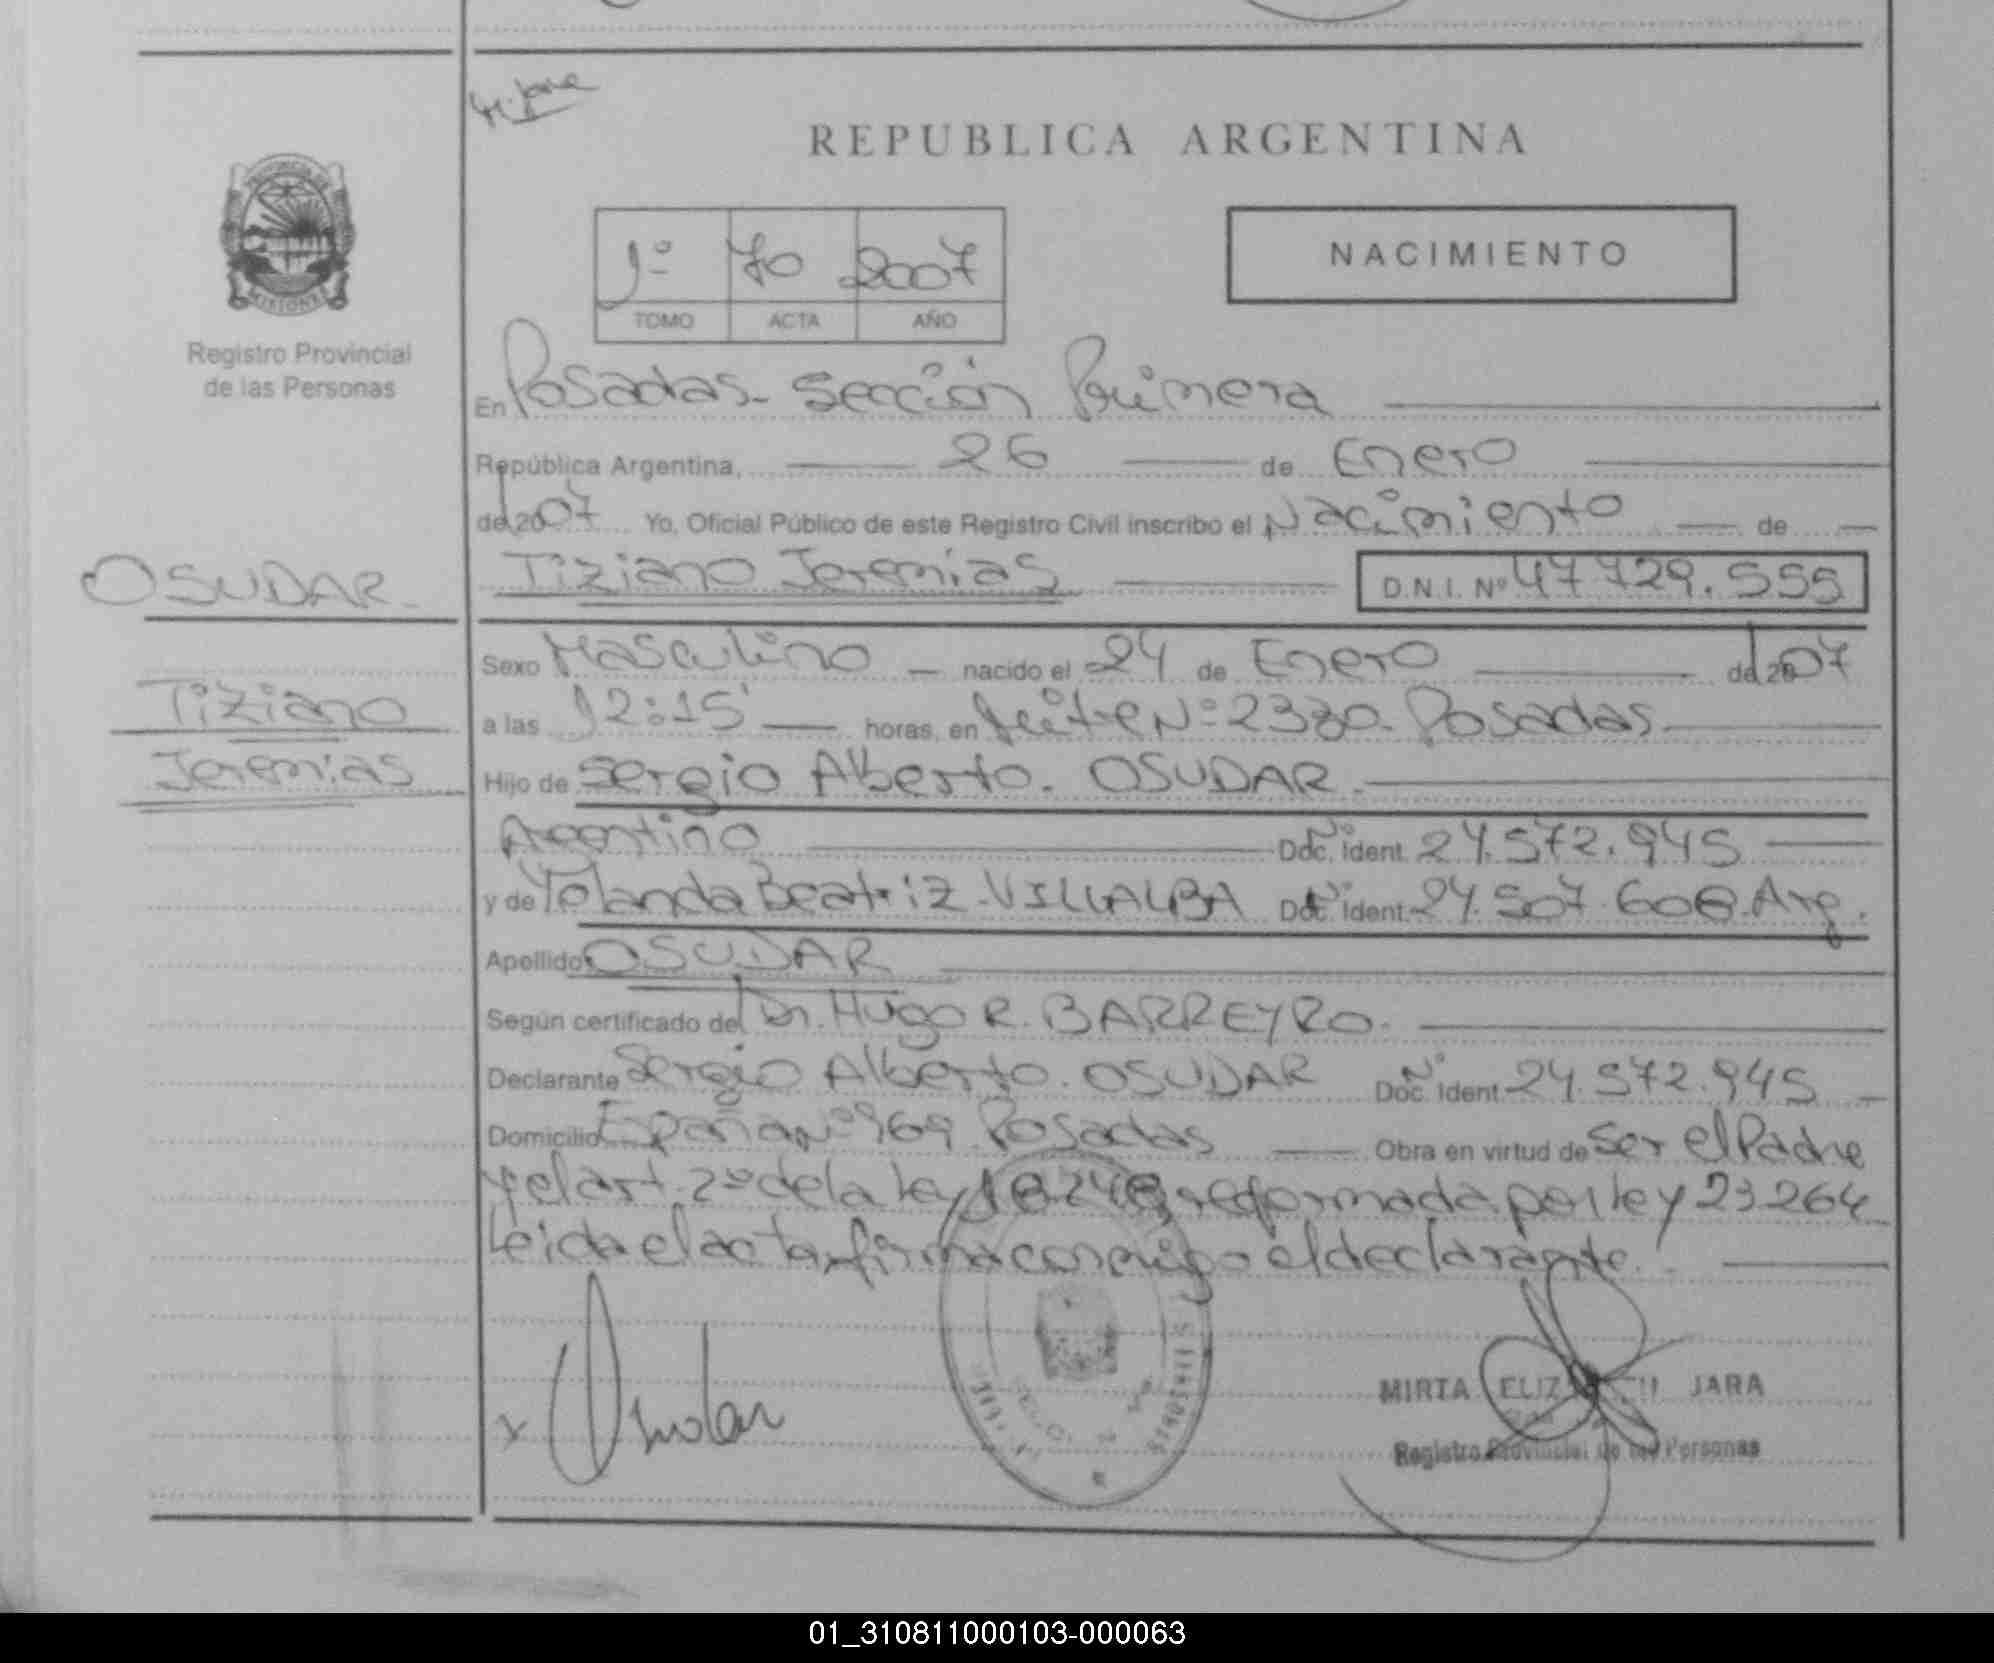 REPUBLICA ARGENTINA
PROVINCIA DE
MISIONES
Registro Provincial
de las Personas
1º 70 2007
TOMO ACTA AÑO
NACIMIENTO
En Posadas- Sección Primera
República Argentina, 26 de Enero
del 2007 Yo, Oficial Público de este Registro Civil inscribo el Nacimiento de
OSUDAR
Tiziano Jeremías D.N.I. Nº 47 729.555
Sexo Masculino nacido el 24 de Enero del 2007
Tiziano
Jeremías
a las 12:15' horas, en Nº 2380- Posadas
Hijo de Sergio Alberto. OSUDAR.
Argentino Nº Doc. Ident. 24.572.945
y de Yolanda Beatriz VILLALBA Nº Doc. Ident. 24.507.608 Arg.
Apellido OSUDAR
Según certificado del Dr. Hugo R. BARREYRO.
Declarante Sergio Alberto. OSUDAR Nº Doc. Ident. 24.572.945
Domicilio España Nº 969 Posadas Obra en virtud de Ser el Padre
y el art. 2º de la Ley 18248, reformada por ley 23264
Leida el acta, firma conmigo el declarante.
x Osudar
MIRTA JARA
Registro Provincial de las Personas
01_310811000103-000063